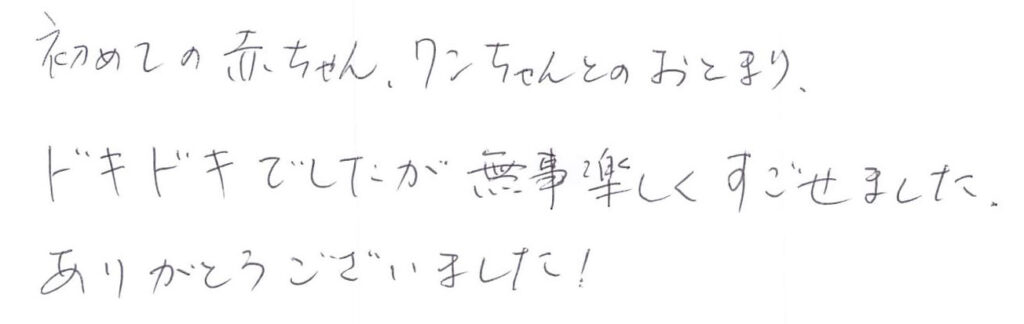 初めての赤ちゃん、ワンちゃんとのおとまり、
ドキドキでしたが無事楽しくすごせました。
ありがとうございました!